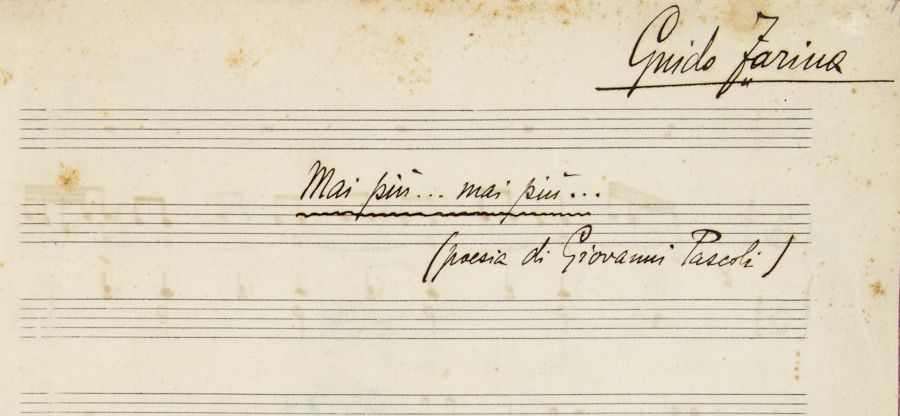 Guido Farina
Mai più... mai più...
(poesia di Giovanni Pascoli)